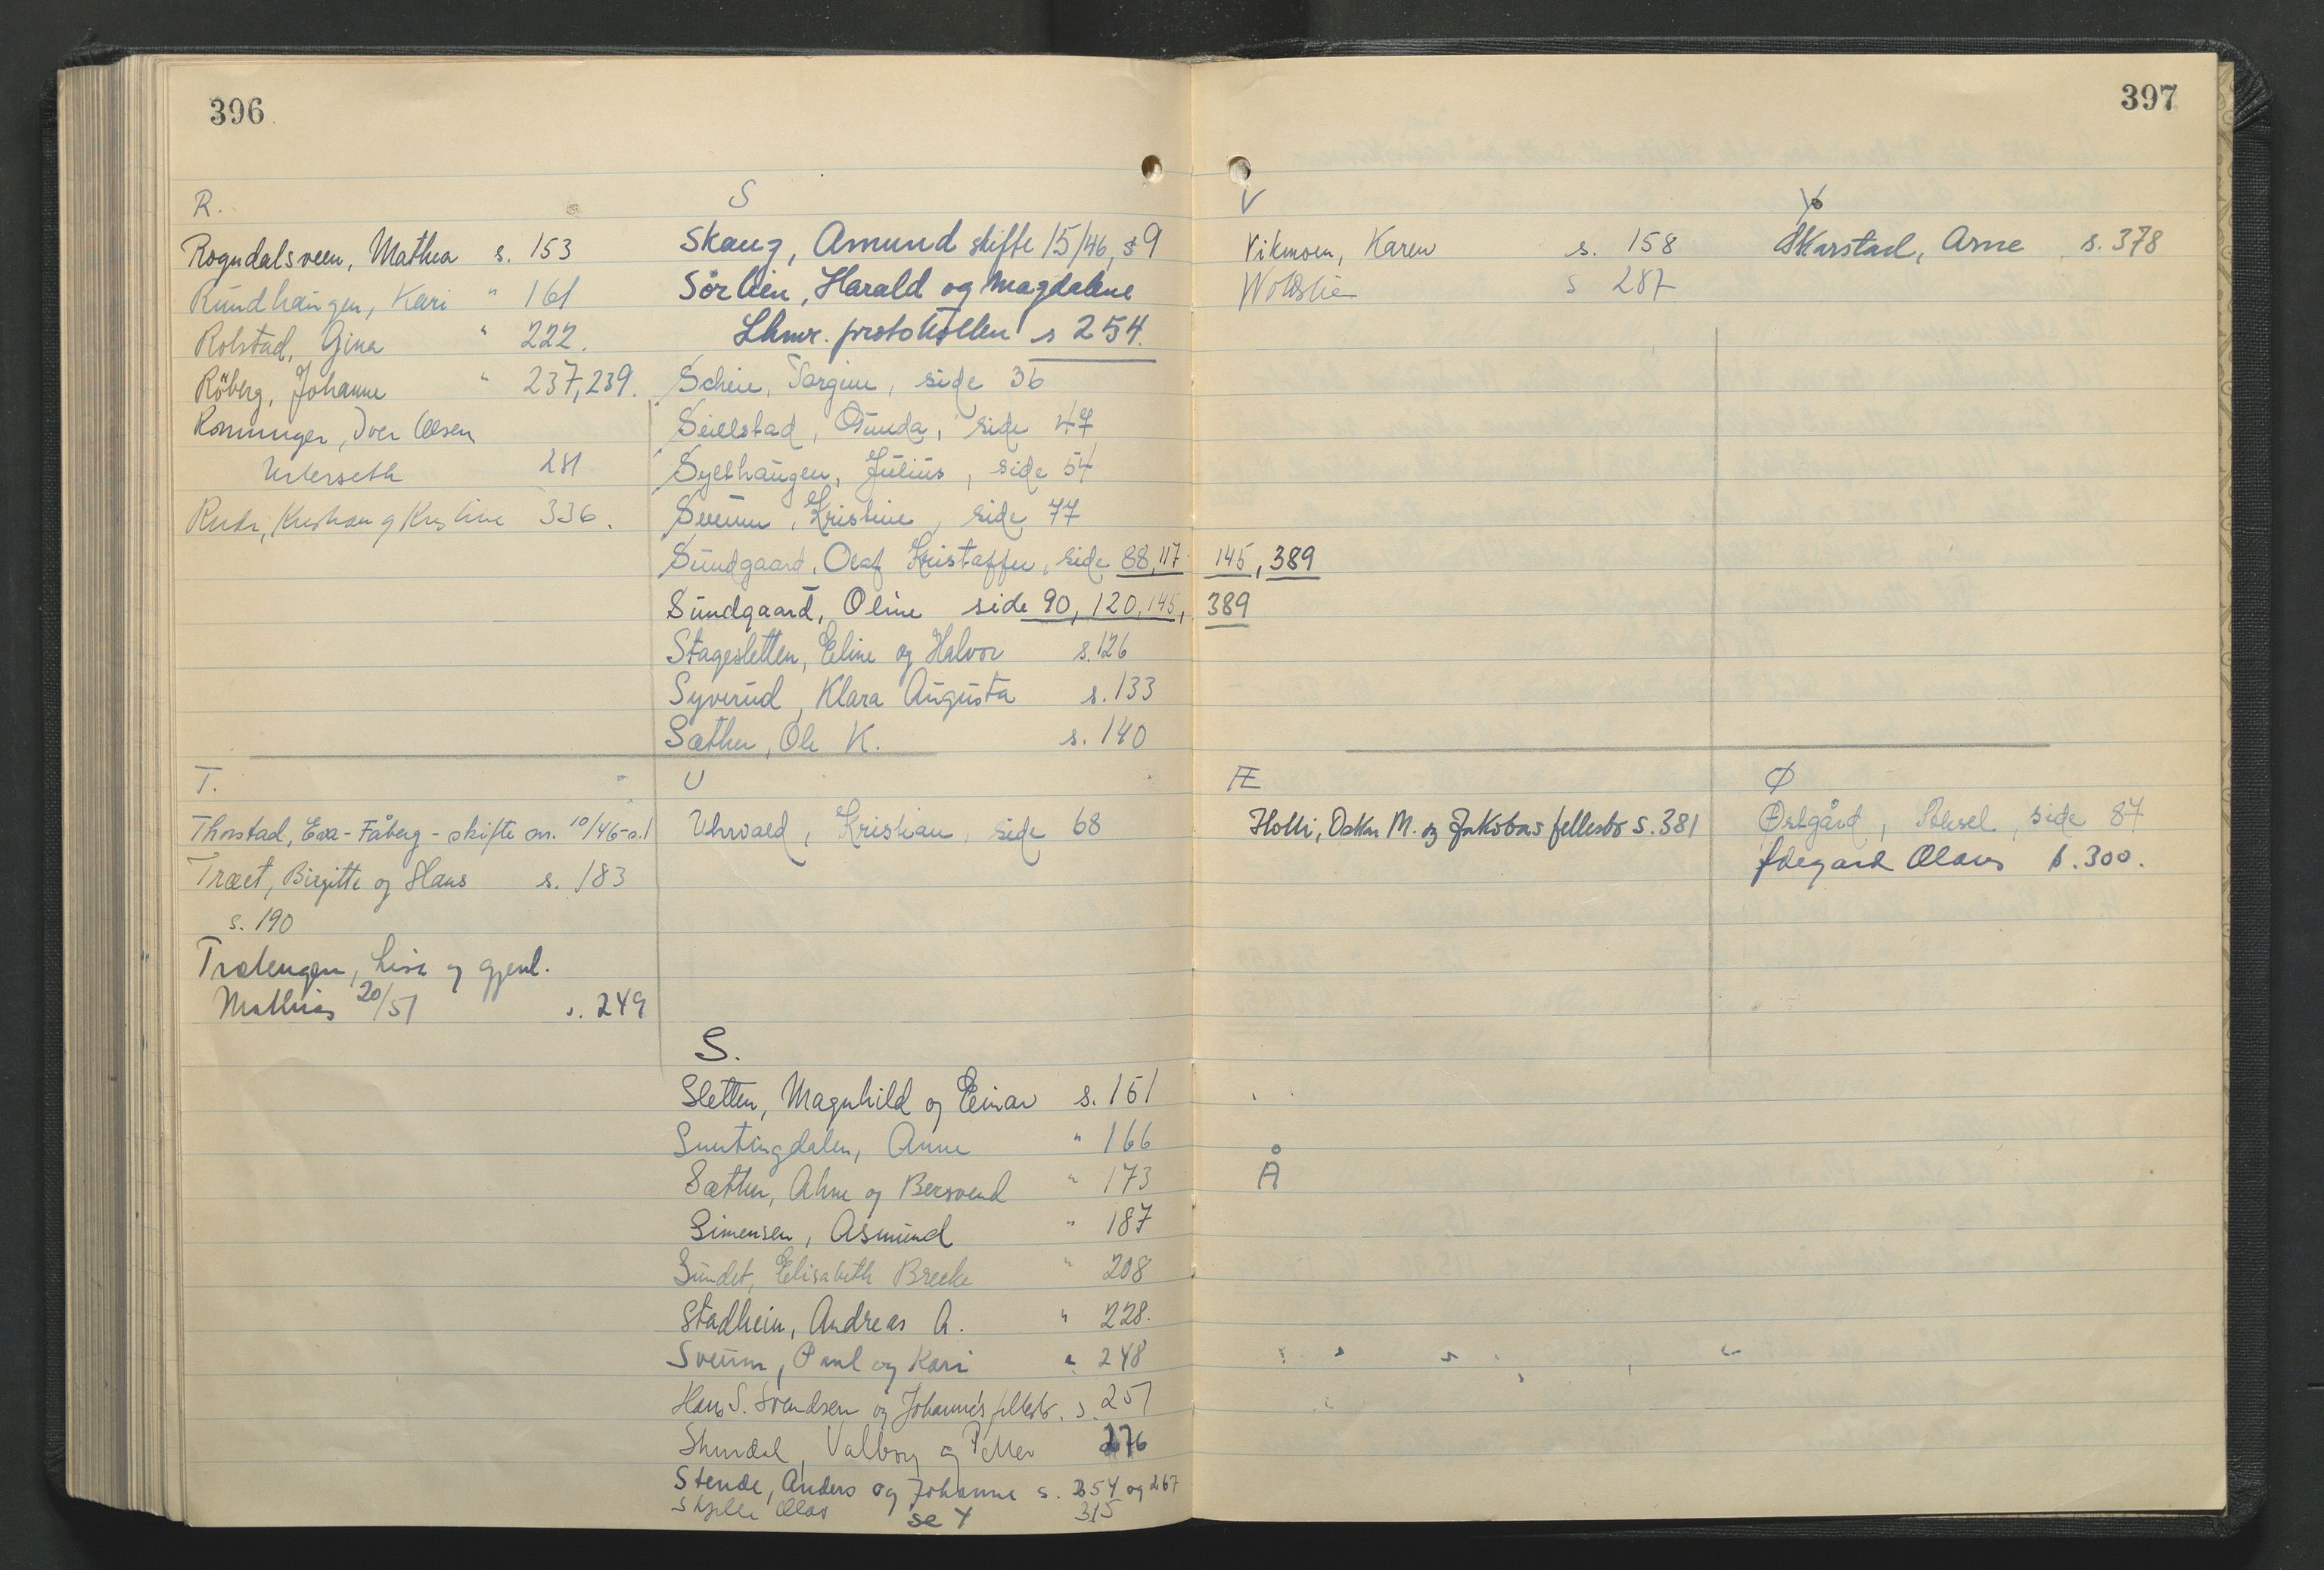 396
R.
Rogndalsveen, Mathea s. 153
Rundhaugen, Kari " 161
Rolstad, Gina " 222.
Röberg, Johanne " 237, 239.
Ronninger, Iver Olsen
281
Kristine 336.
S
Skaug, Amund skifte 15/46, s 9
Sörlien, Harald og Magdalene
Lhmr. protokollen s 254.
Scheie, Torgine, side 36
Seielstad, Gunda, side 47
Sylthaugen, Julius, side 54
Sveum, Kristine, side 77
Sundgaard, Olaf Kristaffer, side 88, 117 145, 389
Sundgaard, Oline side 90, 120, 145, 389
Stagesletten, Eline og Halvor s. 126
Syverud, Klara Augusta s. 133
Sæther, Ole K. s. 140
T.
Thorstad, Eva - Fåberg - skifte nr. 10/46-a.1
Træet, Birgitte og Hans s. 183
s. 190
Trælengen, Lisa og gjenl.
Mathias 20/51 s. 249
U
Uhrvald, Kristian, side 68
S.
Sletten, Magnhild og Einar s. 151
Smutingdalen, Anne " 166
Sæther, og Bersvend " 173
Simensen, Asmund " 187
Sundet, Elisabeth Brecke " 208
Stadheim, Andreas A. " 228.
Sveum, Paul og Kari " 248
Hans S. Svendsen og Johanne's fellesbo. s. 251
Valborg og Petter 276
Stende, Anders og Johanne s. 254 og 267
Olav 315
se Y
397
V
Vikmoen, Karen s. 158
s 287
Y
Skarstad, Arne s. 378
Æ
Holli, Oskar M. og Jakobas fellesbo s. 381
Ø
Østgård, Aksel, side 87
Ødegard Olaus s. 300.
Å